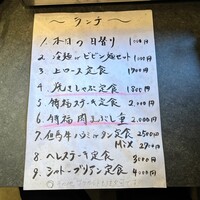 ～ランチ～
1. 本日の日替り 1000円
2. 冷麺 or ビビン麺セット 1100円
3. 上ロース定食 1900円
4. 焼きしゃぶ定食 1800円
5. 特撰ステーキ定食 2,000円
6. 特撰肉まぶし重 2,000円
7. 但馬牛ハラミ or タン定食 2500円
Mix 2700円
8. ヘレステーキ定食 3000円
9. シャトーブリアン定食 4000円